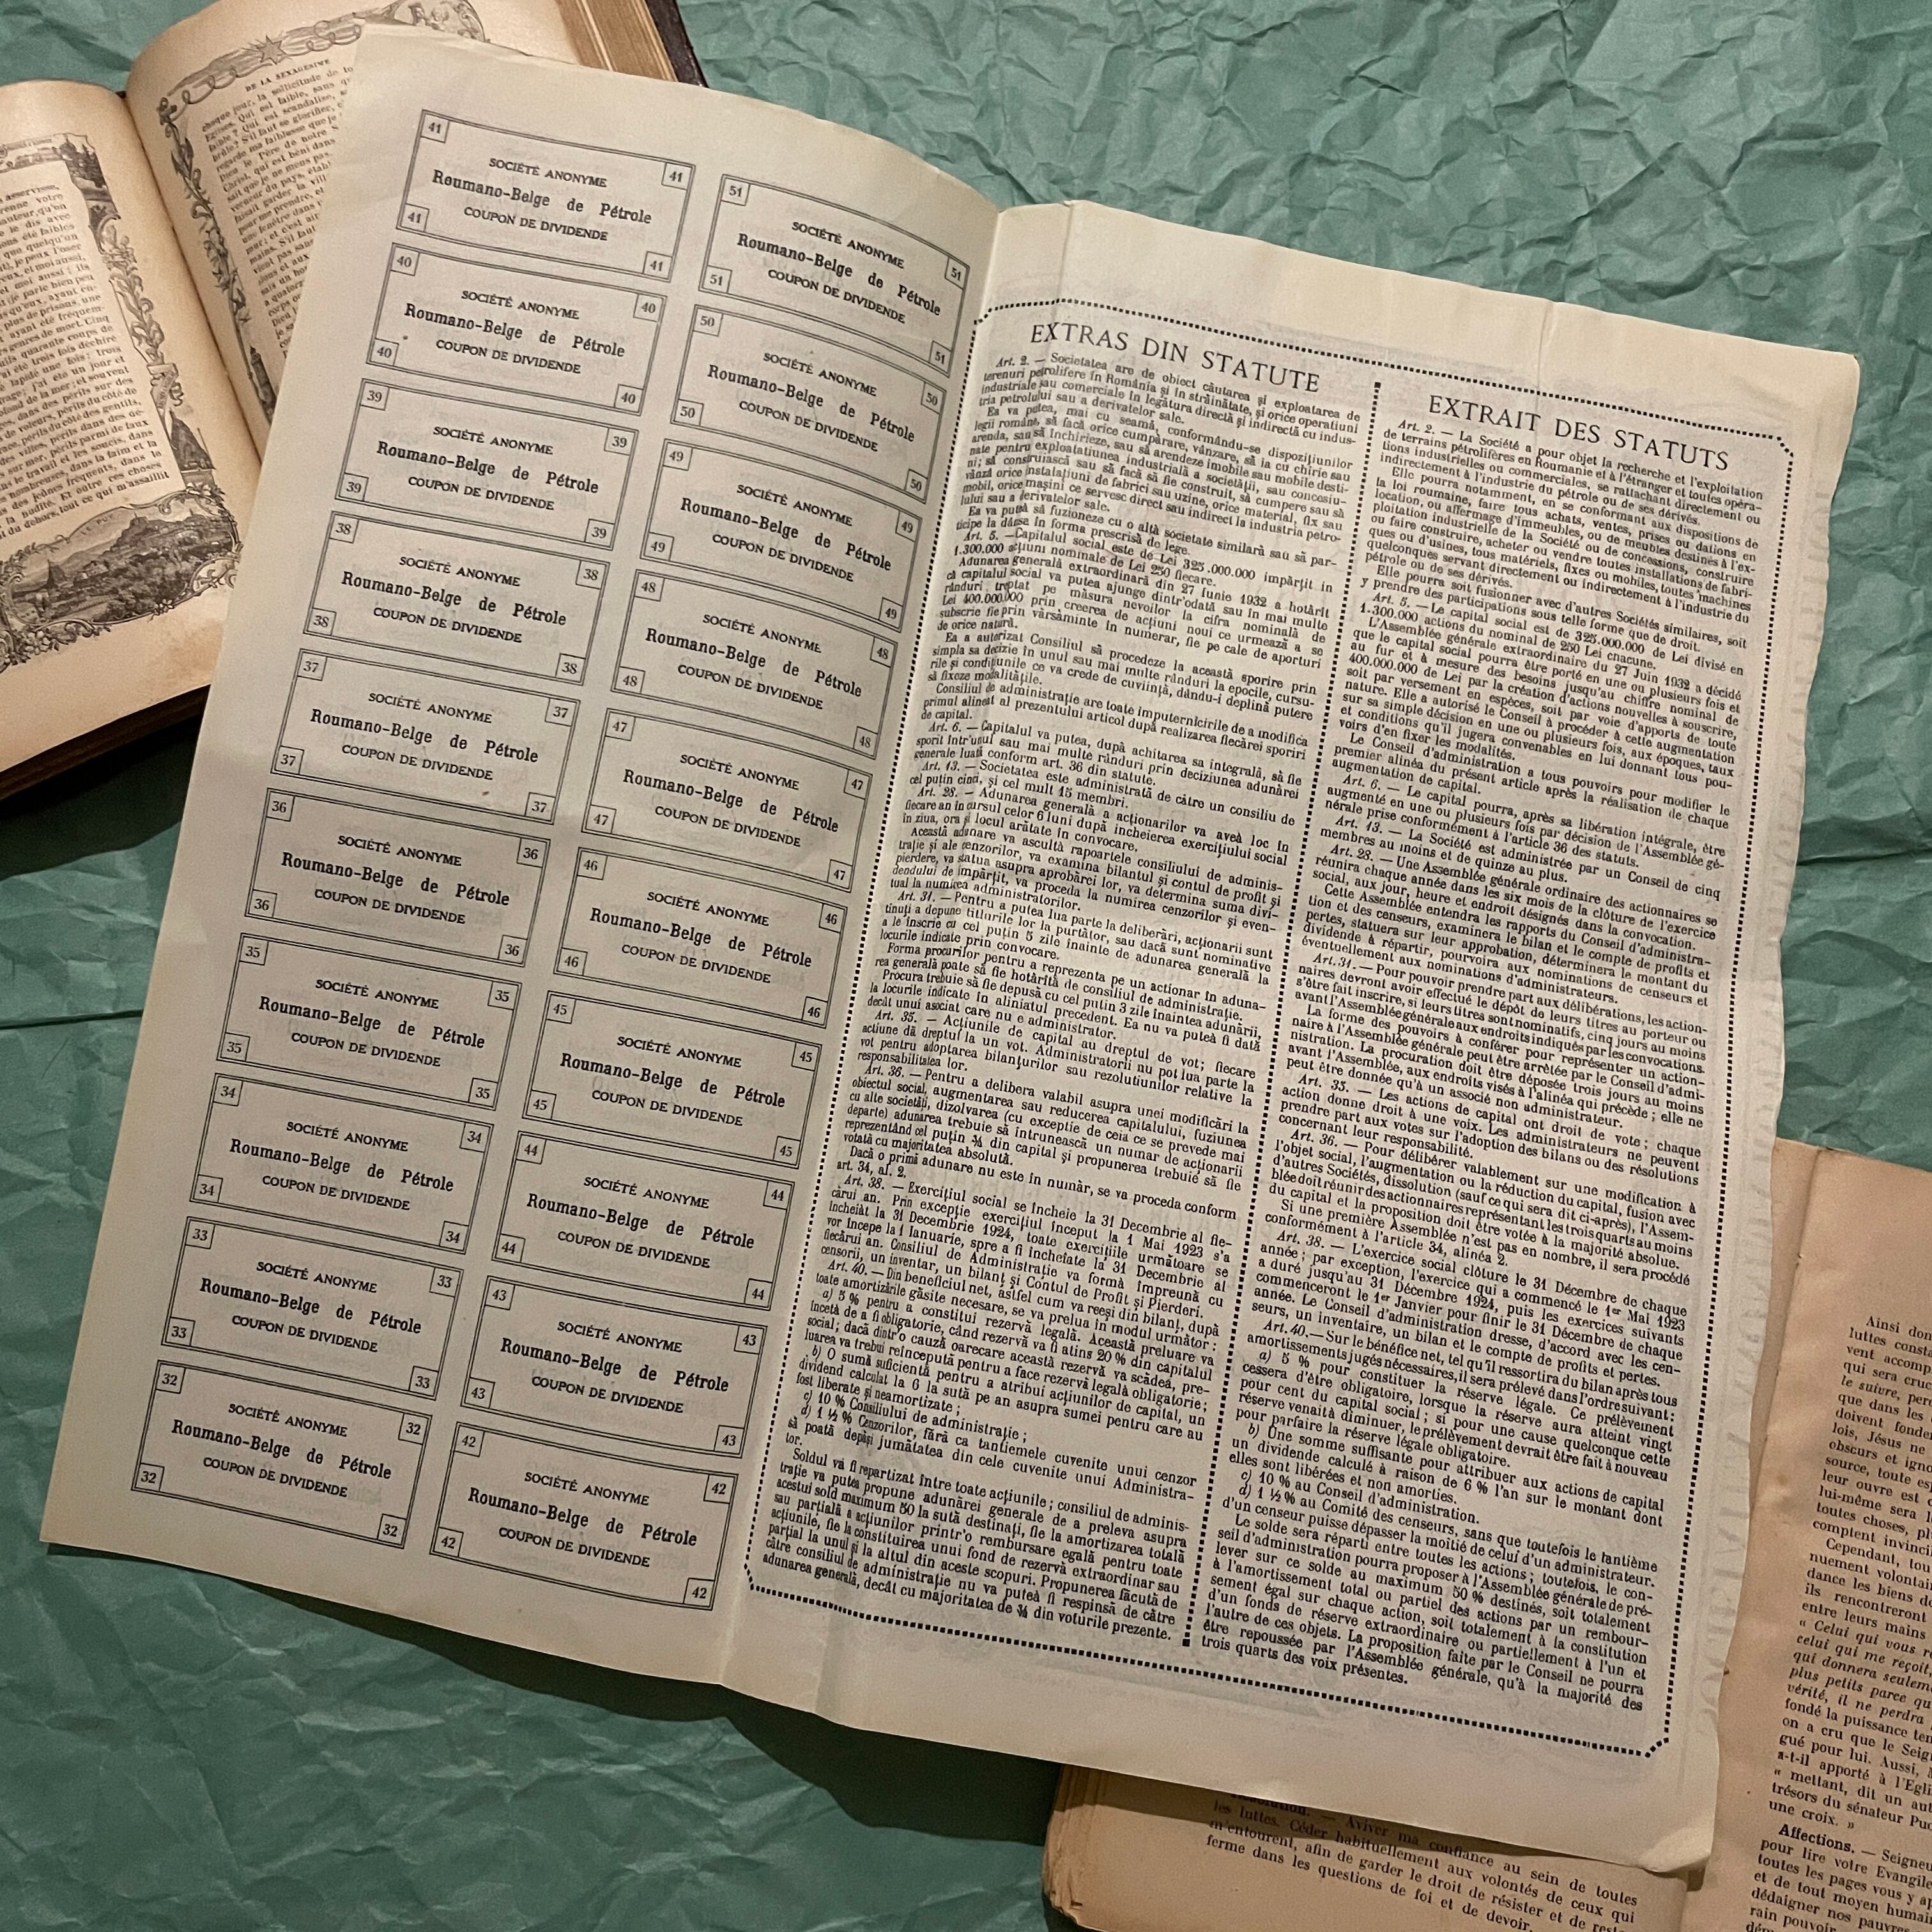 DE LA SEXAGÉSIME
chaque jour, la sollicitude de to
Églises. Qui est faible, sans q
41
SOCIÉTÉ ANONYME
41
Roumano-Belge de Pétrole
41
COUPON DE DIVIDENDE
41
40
SOCIÉTÉ ANONYME
40
Roumano-Belge de Pétrole
40
COUPON DE DIVIDENDE
40
39
SOCIÉTÉ ANONYME
39
Roumano-Belge de Pétrole
39
COUPON DE DIVIDENDE
39
38
SOCIÉTÉ ANONYME
38
Roumano-Belge de Pétrole
38
COUPON DE DIVIDENDE
38
37
SOCIÉTÉ ANONYME
37
Roumano-Belge de Pétrole
37
COUPON DE DIVIDENDE
37
36
SOCIÉTÉ ANONYME
36
Roumano-Belge de Pétrole
36
COUPON DE DIVIDENDE
36
35
SOCIÉTÉ ANONYME
35
Roumano-Belge de Pétrole
35
COUPON DE DIVIDENDE
35
34
SOCIÉTÉ ANONYME
34
Roumano-Belge de Pétrole
34
COUPON DE DIVIDENDE
34
33
SOCIÉTÉ ANONYME
33
Roumano-Belge de Pétrole
33
COUPON DE DIVIDENDE
33
32
SOCIÉTÉ ANONYME
32
Roumano-Belge de Pétrole
32
COUPON DE DIVIDENDE
32
51
SOCIÉTÉ ANONYME
51
Roumano-Belge de Pétrole
51
COUPON DE DIVIDENDE
51
50
SOCIÉTÉ ANONYME
50
Roumano-Belge de Pétrole
50
COUPON DE DIVIDENDE
50
49
SOCIÉTÉ ANONYME
49
Roumano-Belge de Pétrole
49
COUPON DE DIVIDENDE
49
48
SOCIÉTÉ ANONYME
48
Roumano-Belge de Pétrole
48
COUPON DE DIVIDENDE
48
47
SOCIÉTÉ ANONYME
47
Roumano-Belge de Pétrole
47
COUPON DE DIVIDENDE
47
46
SOCIÉTÉ ANONYME
46
Roumano-Belge de Pétrole
46
COUPON DE DIVIDENDE
46
45
SOCIÉTÉ ANONYME
45
Roumano-Belge de Pétrole
45
COUPON DE DIVIDENDE
45
44
SOCIÉTÉ ANONYME
44
Roumano-Belge de Pétrole
44
COUPON DE DIVIDENDE
44
43
SOCIÉTÉ ANONYME
43
Roumano-Belge de Pétrole
43
COUPON DE DIVIDENDE
43
42
SOCIÉTÉ ANONYME
42
Roumano-Belge de Pétrole
42
COUPON DE DIVIDENDE
42
EXTRAS DIN STATUTE
Art. 2. — Societatea are de obiect căutarea și exploatarea de
terenuri petrolifere în România și în străinătate, și orice operatiuni
industriale sau comerciale în legătura directă și indirectă cu indus-
tria petrolului sau a derivatelor sale.
Ea va putea, mai cu seamă, conformându-se dispozițiunilor
legii române, să facă orice cumpărare, vânzare, să ia cu chirie sau
arenda, sau să închirieze, sau să arendeze imobile sau mobile desti-
nate pentru exploatatiunea industrială a societății, sau concesiu-
ni; să construiască sau să facă să fie construit, să cumpere sau să
vânză orice instalațiuni de fabrici sau uzine, orice material, fix sau
mobil, orice mașini ce servesc direct sau indirect la industria petro-
lului sau a derivatelor sale.
Ea va puteà să fuzioneze cu o altă societate similară sau să par-
ticipe la dânsa în forma prescrisă de lege.
Art. 5. — Capitalul social este de Lei 325.000.000 împărțit în
1.300.000 acțiuni nominale de Lei 250 fiecare.
Adunarea generală extraordinară din 27 Iunie 1932 a hotărît
că capitalul social va putea ajunge dintr'odată sau în mai multe
rânduri treptat pe măsura nevoilor la cifra nominală de
Lei 400.000.000 prin creerea de acțiuni noui ce urmează a se
subscrie fie prin vărsăminte în numerar, fie pe cale de aporturi
de orice natură.
Ea a autorizat Consiliul să procedeze la această sporire prin
simpla sa decizie în unul sau mai multe rânduri la epocile, cursu-
rile și condițiunile ce va crede de cuviință, dându-i deplină putere
să fixeze modalitățile.
Consiliul de administrație are toate imputernicirile de a modifica
primul alineat al prezentului articol după realizarea fiecărei sporiri
de capital.
Art. 6. — Capitalul va putea, după achitarea sa integrală, să fie
sporit într'unul sau mai multe rânduri prin deciziunea adunărei
generale luată conform art. 36 din statute.
Art. 13. — Societatea este administrată de către un consiliu de
cel puțin cinci, și cel mult 15 membri.
Art. 28. — Adunarea generală a acționarilor va aveà loc în
fiecare an în cursul celor 6 luni după incheierea exercițiului social
în ziua, ora și locul arătate în convocare.
Această adunare va ascultà rapoartele consiliului de adminis-
trație și ale cenzorilor, va examina bilantul și contul de profit și
pierdere, va statua asupra aprobărei lor, va determina suma divi-
dendului de împărțit, va proceda la numirea cenzorilor și even-
tual la numirea administratorilor.
Art. 31. — Pentru a putea lua parte la deliberări, acționarii sunt
tinuți a depune titlurile lor la purtător, sau dacă sunt nominative
a le înscrie cu cel puțin 5 zile înainte de adunarea generală la
locurile indicate prin convocare.
Forma procurilor pentru a reprezenta pe un actionar în aduna-
rea generală poate să fie hotărîtă de consiliul de administrație.
Procura trebuie să fie depusă cu cel putin 3 zile înaintea adunării,
la locurile indicate în aliniatul precedent. Ea nu va puteà fi dată
decât unui asociat care nu e administrator.
Art. 35. — Acțiunile de capital au dreptul de vot; fiecare
acțiune dă dreptul la un vot. Administratorii nu pot lua parte la
vot pentru adoptarea bilanțurilor sau rezolutiunilor relative la
responsabilitatea lor.
Art. 36. — Pentru a delibera valabil asupra unei modificări la
obiectul social, augmentarea sau reducerea capitalului, fuziunea
cu alte societăți, dizolvarea (cu exceptie de ceia ce se prevede mai
departe) adunarea trebuie să întrunească un numar de acționarii
reprezentând cel puțin ¾ din capital și propunerea trebuie să fie
votată cu majoritatea absolută.
Dacă o primă adunare nu este în număr, se va proceda conform
art. 34, al. 2.
Art. 38. — Exercițiul social se încheie la 31 Decembrie al fie-
cărui an. Prin excepție exercițiul început la 1 Mai 1923 s'a
încheiàt la 31 Decemvrie 1924, toate exercițiile următoare se
vor începe la 1 Ianuarie, spre a fi încheiate la 31 Decembrie al
fiecărui an. Consiliul de Administrație va formà împreună cu
censorii, un inventar, un bilanț și Contul de Profit și Pierderi.
Art. 40. — Din beneficiul net, astfel cum va reeși din bilanț, după
toate amortizările găsite necesare, se va prelua în modul următor :
a) 5 % pentru a constitui rezervă legală. Această preluare va
încetà de a fi obligatorie, când rezervă va fi atins 20 % din capitalul
social; dacă dintr'o cauză oarecare această rezervă va scădeà, pre-
luarea va trebui reîncepută pentru a face rezervă legală obligatorie;
b) O sumă suficientă pentru a atribui acțiunilor de capital, un
dividend calculat la 6 la sută pe an asupra sumei pentru care au
fost liberate și neamortizate ;
c) 10 % Consiliului de administrație ;
d) 1 ½ % Cenzorilor, fără ca tantiemele cuvenite unui cenzor
să poată depăși jumătatea din cele cuvenite unui Administra-
tor.
Soldul va fi repartizat între toate acțiunile ; consiliul de adminis-
trație va putea propune adunărei generale de a preleva asupra
acestui sold maximum 50 la sută destinați, fie la amortizarea totală
sau parțială a acțiunilor printr'o rembursare egală pentru toate
acțiunile, fie la constituirea unui fond de rezervă extraordinar sau
parțial la unul și la altul din aceste scopuri. Propunerea făcută de
către consiliul de administrație nu va puteà fi respinsă de către
adunarea generală, decât cu majoritatea de ¾ din voturile prezente.
EXTRAIT DES STATUTS
Art. 2. — La Société a pour objet la recherche et l'exploitation
de terrains pétrolifères en Roumanie et à l'étranger et toutes opéra-
tions industrielles ou commerciales, se rattachant directement ou
indirectement à l'industrie du pétrole ou de ses dérivés.
Elle pourra notamment, en se conformant aux dispositions de
la loi roumaine, faire tous achats, ventes, prises ou dations en
location, ou affermage d'immeubles, ou de meubles destinés à l'ex-
ploitation industrielle de la Société ou de concessions, construire
ou faire construire, acheter ou vendre toutes installations de fabri-
ques ou d'usines, tous matériels, fixes ou mobiles, toutes machines
quelconques servant directement ou indirectement à l'industrie du
pétrole ou de ses dérivés.
Elle pourra soit fusionner avec d'autres Sociétés similaires, soit
y prendre des participations sous telle forme que de droit.
Art. 5. — Le capital social est de 325.000.000 de Lei divisé en
1.300.000 actions du nominal de 250 Lei chacune.
L'Assemblée générale extraordinaire du 27 Juin 1932 a décidé
que le capital social pourra être porté en une ou plusieurs fois et
au fur et à mesure des besoins jusqu'au chiffre nominal de
400.000.000 de Lei par la création d'actions nouvelles à souscrire,
soit par versement en espèces, soit par voie d'apports de toute
nature. Elle a autorisé le Conseil à procéder à cette augmentation
sur sa simple décision en une ou plusieurs fois, aux époques, taux
et conditions qu'il jugera convenables en lui donnant tous pou-
voirs d'en fixer les modalités.
Le Conseil d'administration a tous pouvoirs pour modifier le
premier alinéa du présent article après la réalisation de chaque
augmentation de capital.
Art. 6. — Le capital pourra, après sa libération intégrale, être
augmenté en une ou plusieurs fois par décision de l'Assemblée gé-
nérale prise conformément à l'article 36 des statuts.
Art. 13. — La Société est administrée par un Conseil de cinq
membres au moins et de quinze au plus.
Art. 28. — Une Assemblée générale ordinaire des actionnaires se
réunira chaque année dans les six mois de la clôture de l'exercice
social, aux jour, heure et endroit désignés dans la convocation.
Cette Assemblée entendra les rapports du Conseil d'administra-
tion et des censeurs, examinera le bilan et le compte de profits et
pertes, statuera sur leur approbation, déterminera le montant du
dividende à répartir, pourvoira aux nominations de censeurs et
éventuellement aux nominations d'administrateurs.
Art. 31. — Pour pouvoir prendre part aux délibérations, les action-
naires devront avoir effectué le dépôt de leurs titres au porteur ou
s'être fait inscrire, si leurs titres sont nominatifs, cinq jours au moins
avant l'Assemblée générale aux endroits indiqués par les convocations.
La forme des pouvoirs à conférer pour représenter un action-
naire à l'Assemblée générale peut être arrêtée par le Conseil d'admi-
nistration. La procuration doit être déposée trois jours au moins
avant l'Assemblée, aux endroits visés à l'alinéa qui précède ; elle ne
peut être donnée qu'à un associé non administrateur.
Art. 35. — Les actions de capital ont droit de vote ; chaque
action donne droit à une voix. Les administrateurs ne peuvent
prendre part aux votes sur l'adoption des bilans ou des résolutions
concernant leur responsabilité.
Art. 36. — Pour délibérer valablement sur une modification à
l'objet social, l'augmentation ou la réduction du capital, fusion avec
d'autres Sociétés, dissolution (sauf ce qui sera dit ci-après), l'Assem-
blée doit réunir des actionnaires représentant les trois quarts au moins
du capital et la proposition doit être votée à la majorité absolue.
Si une première Assemblée n'est pas en nombre, il sera procédé
conformément à l'article 34, alinéa 2.
Art. 38. — L'exercice social clôture le 31 Décembre de chaque
année ; par exception, l'exercice qui a commencé le 1er Mai 1923
a duré jusqu'au 31 Décembre 1924, puis les exercices suivants
commenceront le 1er Janvier pour finir le 31 Décembre de chaque
année. Le Conseil d'administration dresse, d'accord avec les cen-
seurs, un inventaire, un bilan et le compte de profits et pertes.
Art. 40. — Sur le bénéfice net, tel qu'il ressortira du bilan après tous
amortissements jugés nécessaires, il sera prélevé dans l'ordre suivant :
a) 5 % pour constituer la réserve légale. Ce prélèvement
cessera d'être obligatoire, lorsque la réserve aura atteint vingt
pour cent du capital social ; si pour une cause quelconque cette
réserve venait à diminuer, le prélèvement devrait être fait à nouveau
pour parfaire la réserve légale obligatoire.
b) Une somme suffisante pour attribuer aux actions de capital
un dividende calculé à raison de 6 % l'an sur le montant dont
elles sont libérées et non amorties.
c) 10 % au Conseil d'administration.
d) 1 ½ % au Comité des censeurs, sans que toutefois le tantième
d'un censeur puisse dépasser la moitié de celui d'un administrateur.
Le solde sera réparti entre toutes les actions ; toutefois, le con-
seil d'administration pourra proposer à l'Assemblée générale de pré-
lever sur ce solde au maximum 50 % destinés, soit totalement
à l'amortissement total ou partiel des actions par un rembour-
sement égal sur chaque action, soit totalement à la constitution
d'un fonds de réserve extraordinaire ou partiellement à l'un et
l'autre de ces objets. La proposition faite par le Conseil ne pourra
être repoussée par l'Assemblée générale, qu'à la majorité des
trois quarts des voix présentes.
— Aviver ma confiance au sein de toutes
les luttes. Céder habituellement aux volontés de ceux qui
m'entourent, afin de garder le droit de résister et de
ferme dans les questions de foi et de devoir.
Ainsi don
luttes consta
vent accomp
qui sera cruc
le suivre, per
que dans les
doivent fonder
lois, Jésus ne
obscurs et igno
source, toute es
leur ouvre est
lui-même sera l
toutes choses, pl
comptent invinci
Cependant, tou
nuement volontai
dance les biens de
ils rencontreront
entre leurs mains
« Celui qui vous re
celui qui me reçoit,
qui donnera seuleme
plus petits parce qu
vérité, il ne perdra
fondé la puissance ten
on a cru que le Seign
gué pour lui. Aussi,
a-t-il apporté à l'Egli
« mettant, dit un aut
trésors du sénateur Puc
une croix. »
Affections. — Seigneu
pour lire votre Evangile
toutes les pages vous y ap
et de tout moyen humai
dédaigner nos pauvres
rain pouvoir